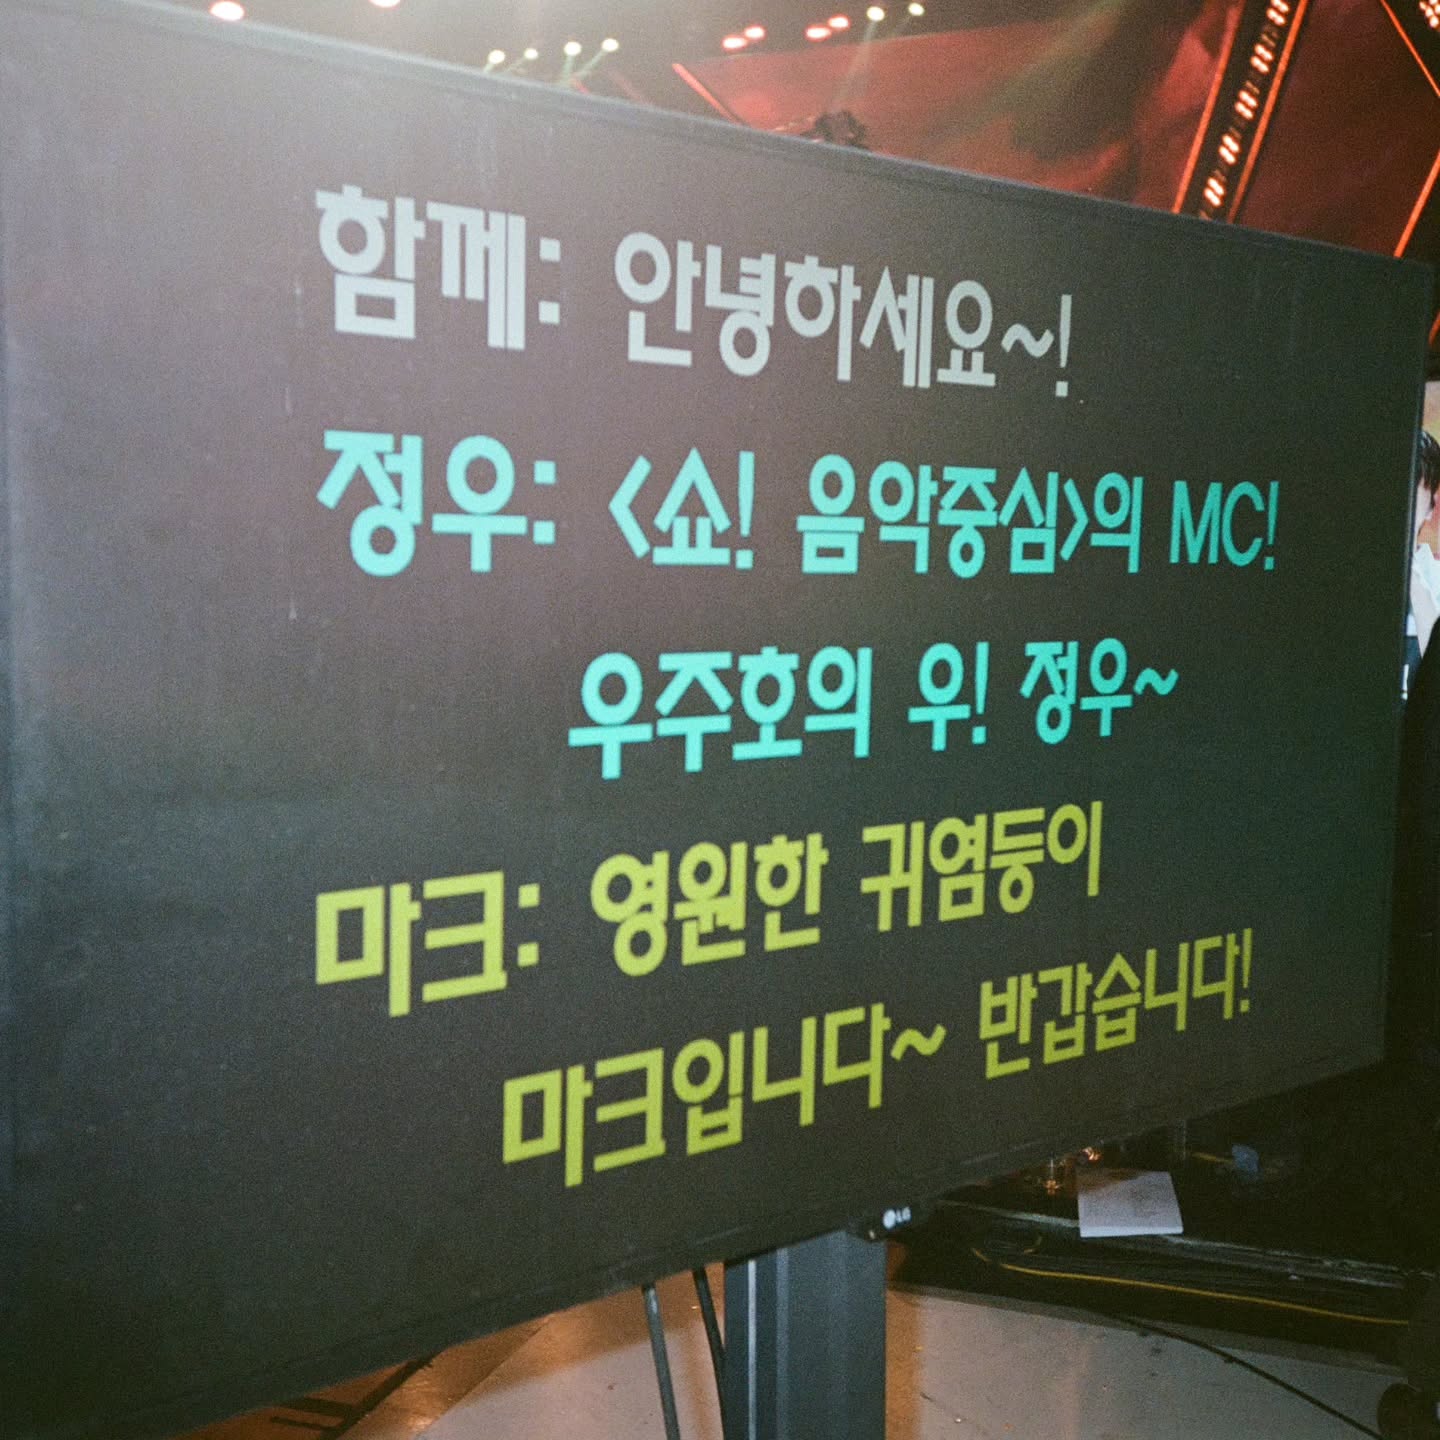 함께: 안녕하세요~!
정우: <쇼! 음악중심>의 MC!
우주호의 우! 정우~
마크: 영원한 귀염둥이
마크입니다~ 반갑습니다!
LG